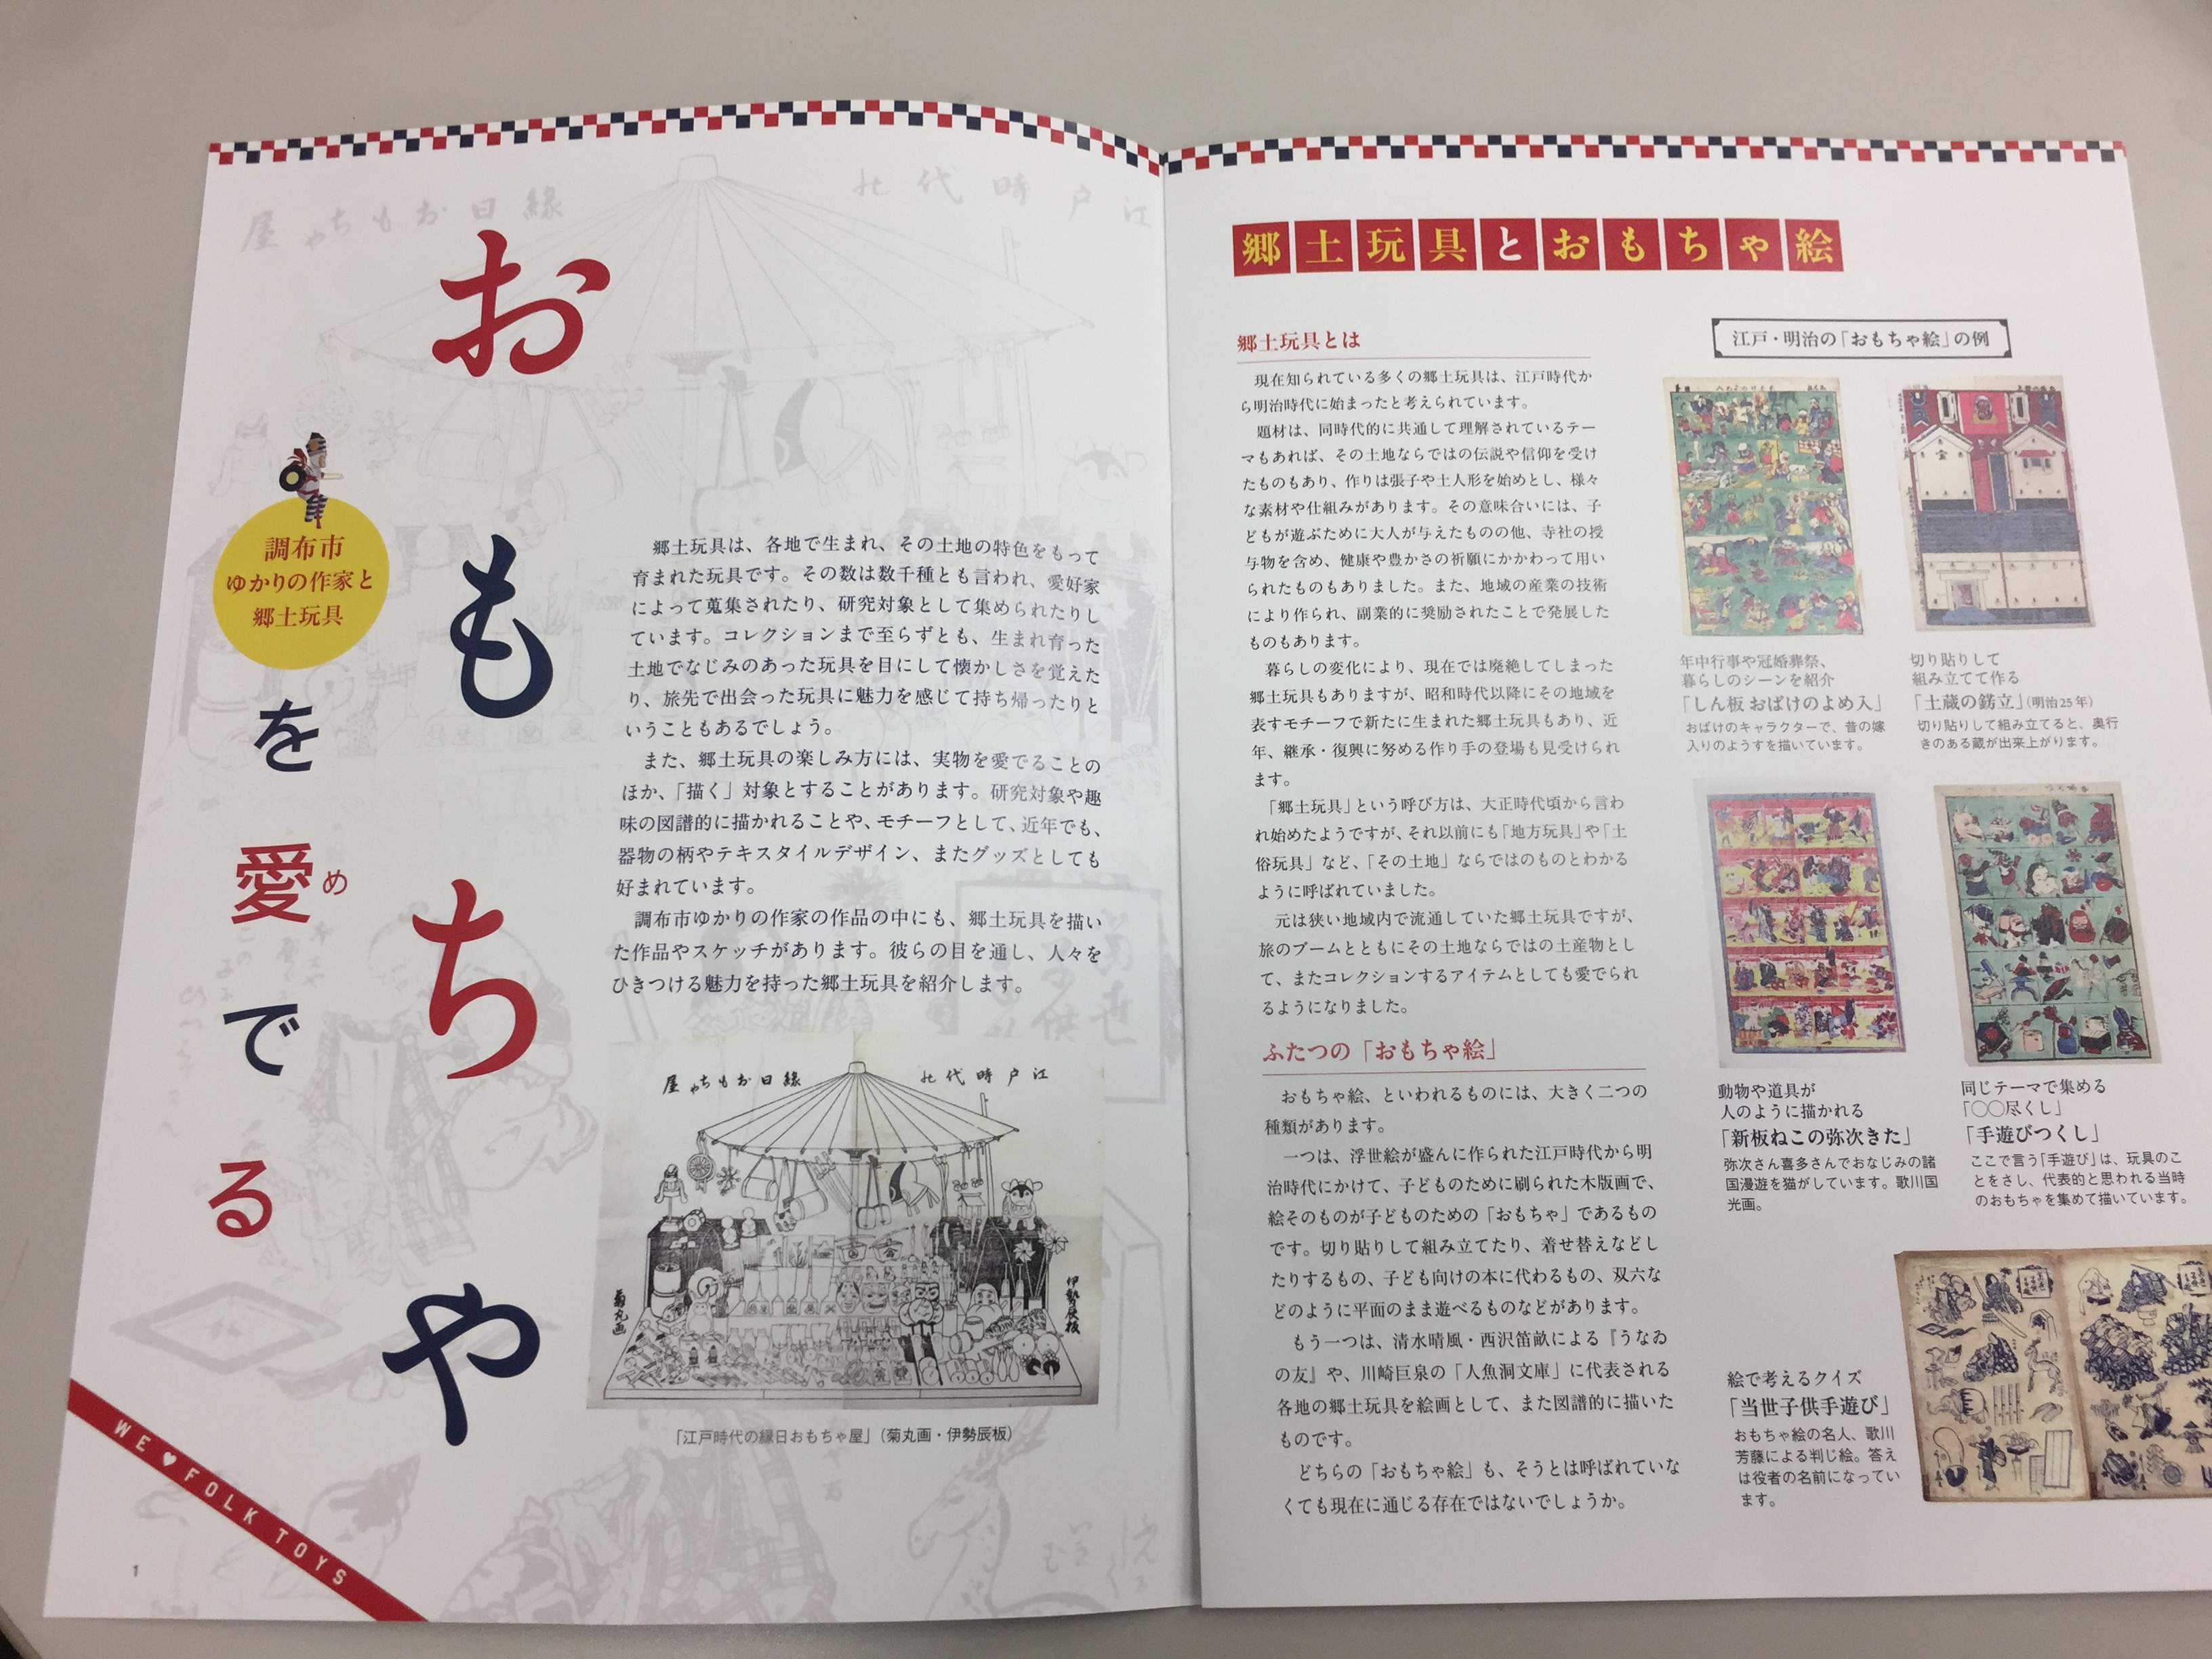 おもちゃ
を愛でる
め
調布市
ゆかりの作家と
郷土玩具
郷土玩具は、各地で生まれ、その土地の特色をもって
育まれた玩具です。その数は数千種とも言われ、愛好家
によって蒐集されたり、研究対象として集められたりし
ています。コレクションまで至らずとも、生まれ育った
土地でなじみのあった玩具を目にして懐かしさを覚えた
り、旅先で出会った玩具に魅力を感じて持ち帰ったりと
いうこともあるでしょう。
また、郷土玩具の楽しみ方には、実物を愛でることの
ほか、「描く」対象とすることがあります。研究対象や趣
味の図譜的に描かれることや、モチーフとして、近年でも、
器物の柄やテキスタイルデザイン、またグッズとしても
好まれています。
調布市ゆかりの作家の作品の中にも、郷土玩具を描い
た作品やスケッチがあります。彼らの目を通し、人々を
ひきつける魅力を持った郷土玩具を紹介します。
江戸時代の
縁日おもちゃ屋
伊勢辰板
菊丸画
「江戸時代の縁日おもちゃ屋」（菊丸画・伊勢辰板）
WE♥FOLK TOYS
1
郷土玩具とおもちゃ絵
郷土玩具とは
現在知られている多くの郷土玩具は、江戸時代か
ら明治時代に始まったと考えられています。
題材は、同時代的に共通して理解されているテー
マもあれば、その土地ならではの伝説や信仰を受け
たものもあり、作りは張子や土人形を始めとし、様々
な素材や仕組みがあります。その意味合いには、子
どもが遊ぶために大人が与えたものの他、寺社の授
与物を含め、健康や豊かさの祈願にかかわって用い
られたものもありました。また、地域の産業の技術
により作られ、副業的に奨励されたことで発展した
ものもあります。
暮らしの変化により、現在では廃絶してしまった
郷土玩具もありますが、昭和時代以降にその地域を
表すモチーフで新たに生まれた郷土玩具もあり、近
年、継承・復興に努める作り手の登場も見受けられ
ます。
「郷土玩具」という呼び方は、大正時代頃から言わ
れ始めたようですが、それ以前にも「地方玩具」や「土
俗玩具」など、「その土地」ならではのものとわかる
ように呼ばれていました。
元は狭い地域内で流通していた郷土玩具ですが、
旅のブームとともにその土地ならではの土産物とし
て、またコレクションするアイテムとしても愛でられ
るようになりました。
ふたつの「おもちゃ絵」
おもちゃ絵、といわれるものには、大きく二つの
種類があります。
一つは、浮世絵が盛んに作られた江戸時代から明
治時代にかけて、子どものために刷られた木版画で、
絵そのものが子どものための「おもちゃ」であるもの
です。切り貼りして組み立てたり、着せ替えなどし
たりするもの、子ども向けの本に代わるもの、双六な
どのように平面のまま遊べるものなどがあります。
もう一つは、清水晴風・西沢笛畝による『うなゐ
の友』や、川崎巨泉の「人魚洞文庫」に代表される
各地の郷土玩具を絵画として、また図譜的に描いた
ものです。
どちらの「おもちゃ絵」も、そうとは呼ばれていな
くても現在に通じる存在ではないでしょうか。
江戸・明治の「おもちゃ絵」の例
年中行事や冠婚葬祭、
暮らしのシーンを紹介
「しん板 おばけのよめ入」
おばけのキャラクターで、昔の嫁
入りのようすを描いています。
切り貼りして
組み立てて作る
「土蔵の錺立」（明治25年）
切り貼りして組み立てると、奥行
きのある蔵が出来上がります。
動物や道具が
人のように描かれる
「新板ねこの弥次きた」
弥次さん喜多さんでおなじみの諸
国漫遊を猫がしています。歌川国
光画。
同じテーマで集める
「〇〇尽くし」
「手遊びつくし」
ここで言う「手遊び」は、玩具のこ
とをさし、代表的と思われる当時
のおもちゃを集めて描いています。
絵で考えるクイズ
「当世子供手遊び」
おもちゃ絵の名人、歌川
芳藤による判じ絵。答え
は役者の名前になってい
ます。